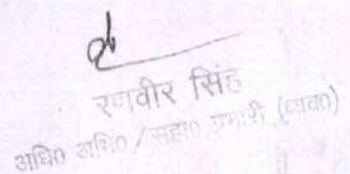 रणवीर सिंह
अधि० अभि० / सहा० प्रभारी